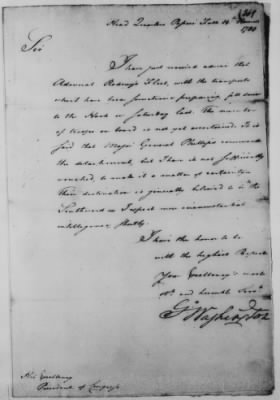 Head Quarters
1780
Sir
I have just received advice that
Admiral Rodney's Fleet, with the transports
which have been sometime preparing fell down
to the Hook on Saturday last. The number
of troops on board is not yet ascertained. It is
said that Major General Phillips commands
the detachment, but I have it not sufficiently
to make it a matter of certainty.
Their destination is generally believed to be
Southward. I expect more circumstantial
intelligence, shortly.
I have the honor to be
with the highest Respect
Your Excellency's most
and humble Servt
G Washington
His Excellency
President of Congress